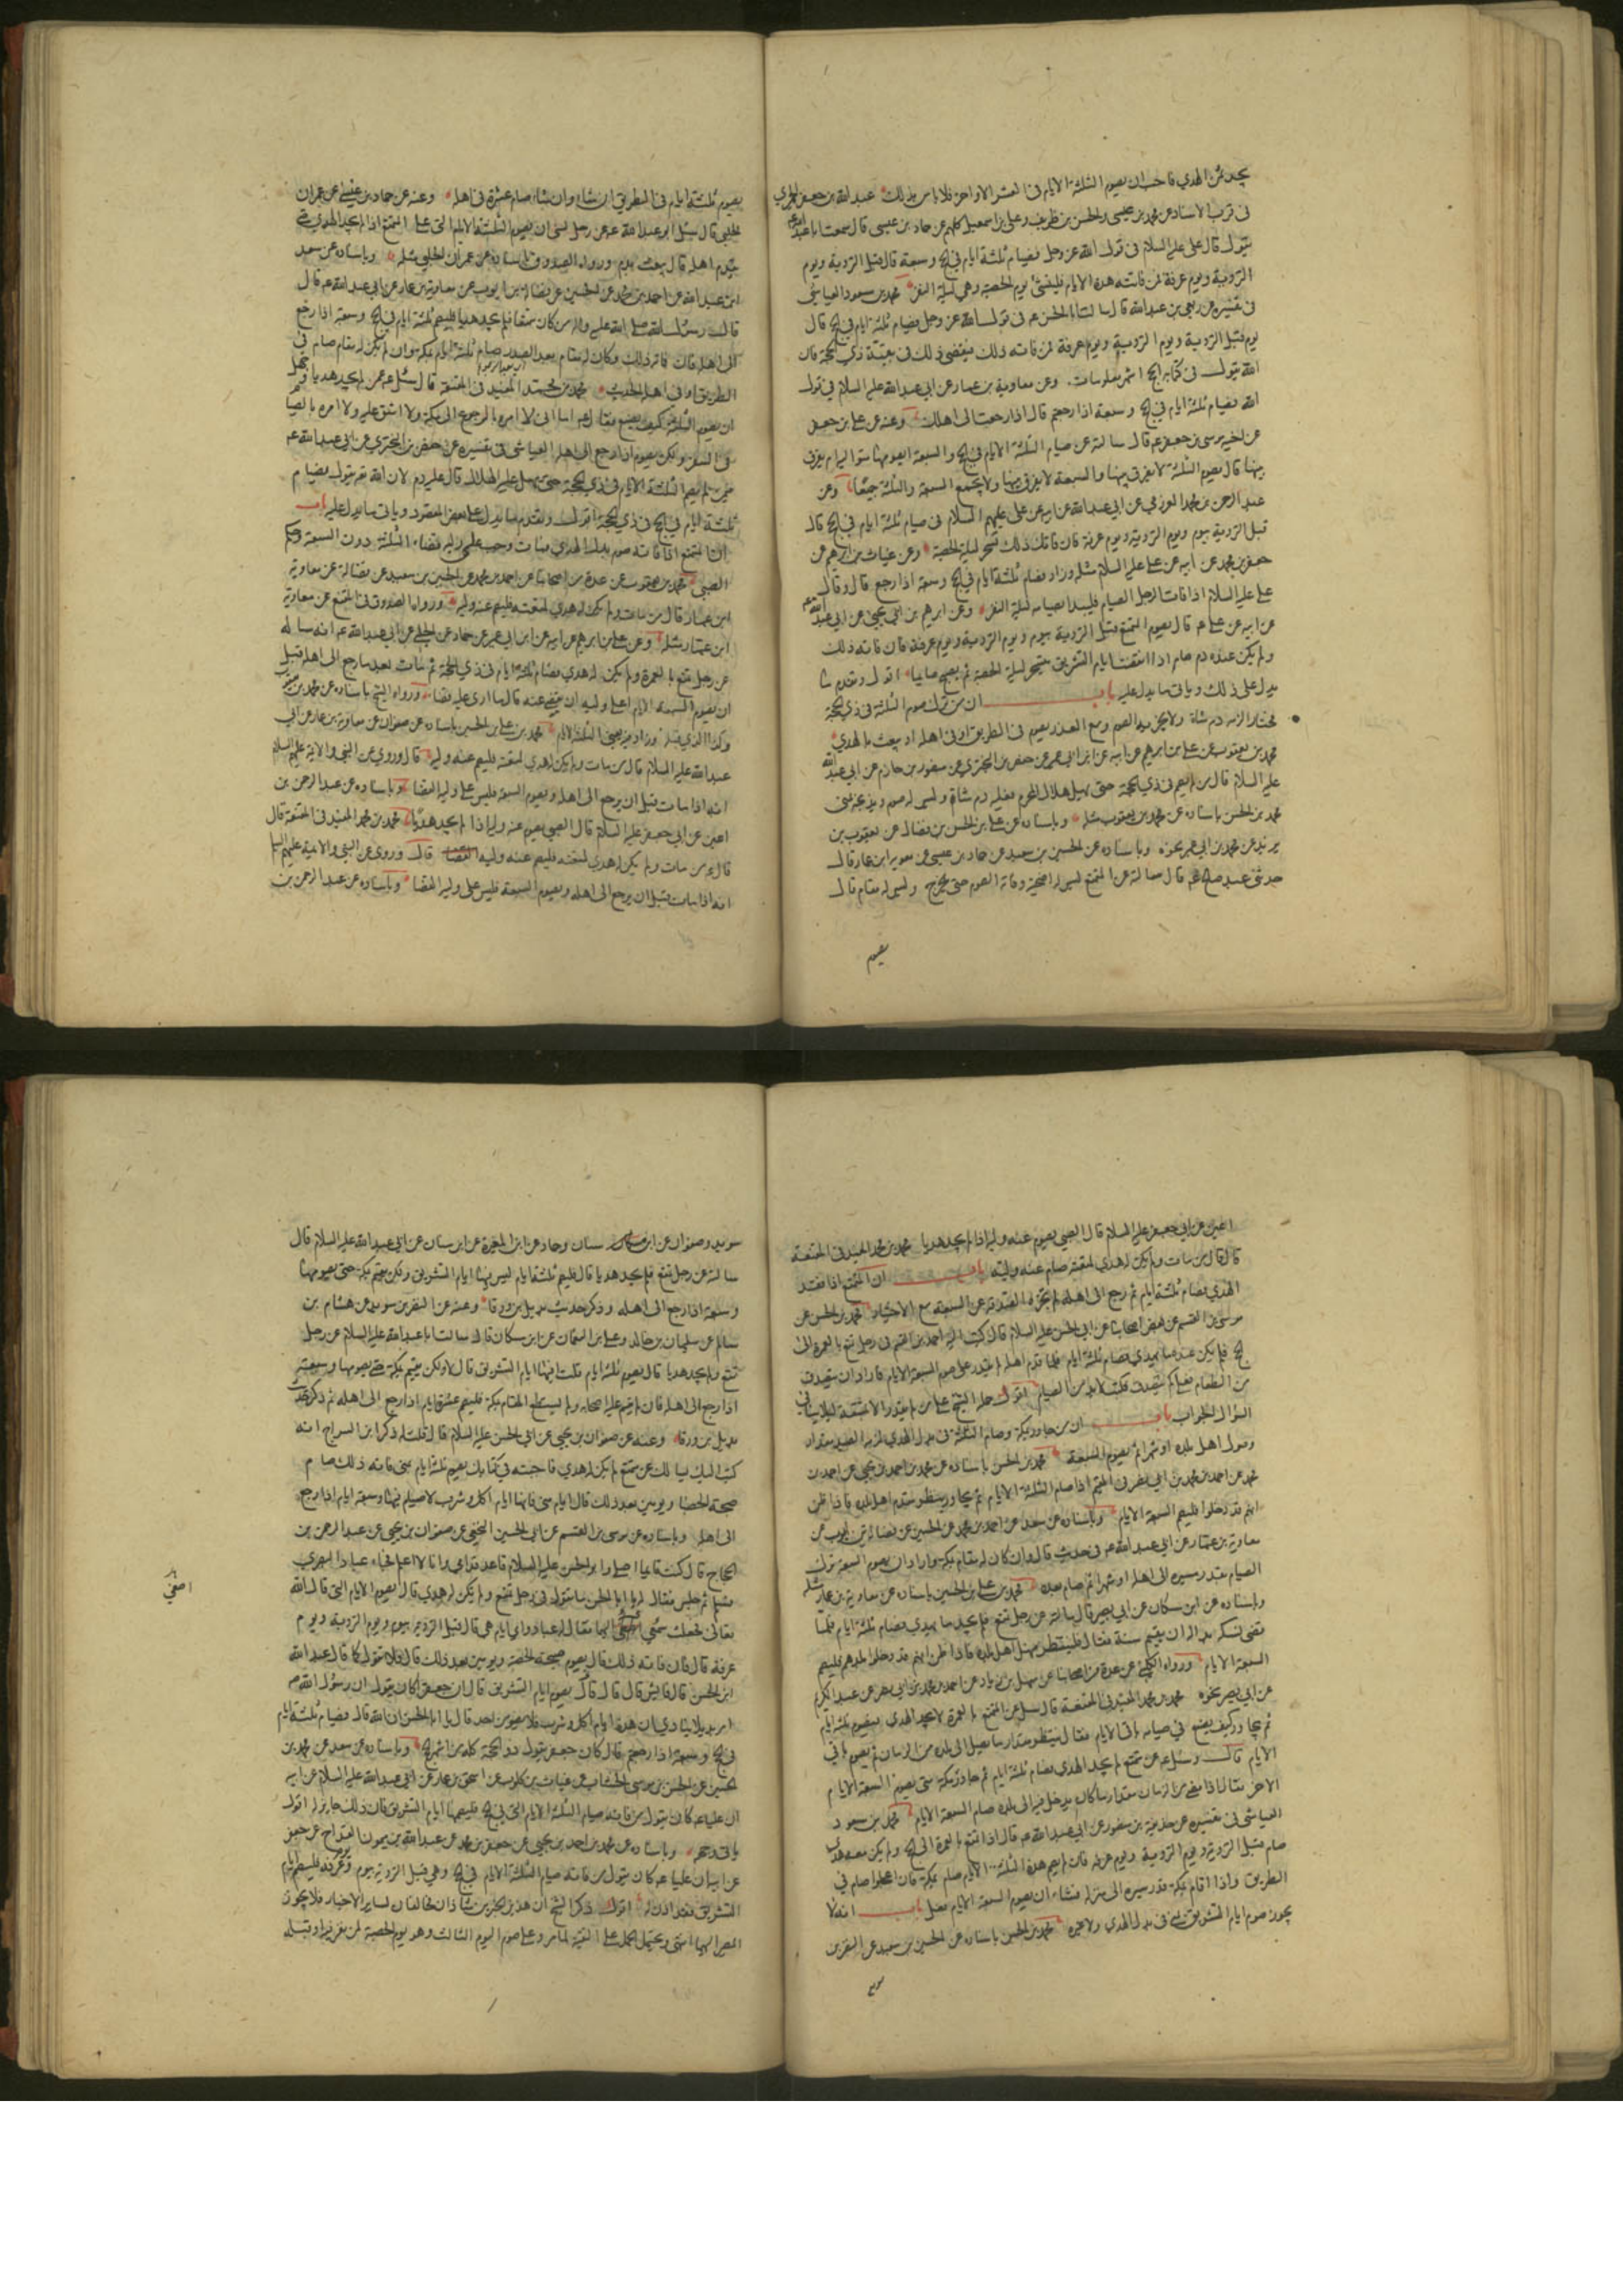 يجد ثمن الهدي فاحب ان يصوم الثلثة الايام في العشر الاواخر فلا باس بذلك عبد الله بن جعفر الحميري
في قرب الاسناد عن محمد بن عيسى والحسن بن ظريف وعلي بن اسمعيل كلهم عن حماد بن عيسى قال سمعت ابا عبد الله
يقول قال علي عليه السلام في قول الله عز وجل فصيام ثلثة ايام في الحج وسبعة قال قبل التروية ويوم
التروية ويوم عرفة فمن فاتته هذه الايام فليقض يوم الحصبة وهي ليلة النفر محمد بن مسعود العياشي
في تفسيره عن ربعي بن عبد الله قال سالت ابا الحسن ع في قول الله عز وجل فصيام ثلثة ايام في الحج قال
يوم قبل التروية ويوم التروية ويوم عرفة فمن فاته ذلك فيقضي ذلك في بقية ذي الحجة فان
الله يقول في كتابه الحج اشهر معلومات وعن معاوية بن عمار عن ابي عبد الله عليه السلام في قول
الله فصيام ثلثة ايام في الحج وسبعة اذا رجعتم قال اذا رجعت الى اهلك وعنه عن علي بن جعفر
عن اخيه موسى بن جعفر ع قال سالته عن صيام الثلثة الايام في الحج والسبعة ايصومها متوالية ام يفرق
بينها قال يصوم الثلثة لا يفرق بينها والسبعة لا يفرق بينها ولا يجمع السبعة والثلثة جميعا وعن
عبد الرحمن بن محمد العرزمي عن ابي عبد الله عن ابيه عن علي عليهم السلام في صيام ثلثة ايام في الحج قال
قبل التروية بيوم ويوم التروية ويوم عرفة فان فاتك ذلك تسحر ليلة الحصبة وعن غياث بن ابرهيم عن
جعفر بن محمد عن ابيه عن علي عليه السلام مثله وزاد فصام ثلثة ايام في الحج وسبعة اذا رجع قال وقال
علي عليه السلام اذا فات الرجل الصيام فليبدا صيامه ليلة النفر وعن ابرهيم بن ابي يحيى عن ابي عبد الله ع
عن ابيه عن علي ع قال يصوم المتمتع قبل التروية بيوم ويوم التروية ويوم عرفة فان فاته ذلك
ولم يكن عنده دم صام اذا انقضت ايام التشريق يتسحر ليلة الحصبة ثم يصبح صايما اقول وتقدم ما
يدل على ذلك وياتي ما يدل عليه باب ان من ترك صوم الثلثة في ذي الحجة
مختارا لزمه دم شاة ولا يجزيه الصوم ومع العذر يصوم في الطريق او في اهله او يبعث بالهدي
محمد بن يعقوب عن علي بن ابرهيم عن ابيه عن ابن ابي عمير عن حفص بن البختري عن منصور بن حازم عن ابي عبد الله
عليه السلام قال من لم يصم في ذي الحجة حتى يهل هلال المحرم فعليه دم شاة وليس له صوم ويذبحه بمنى
محمد بن الحسن باسناده عن محمد بن يعقوب مثله وباسناده عن علي بن الحسن بن فضال عن يعقوب بن
يزيد عن محمد بن ابي عمير نحوه وباسناده عن الحسين بن سعيد عن حماد بن عيسى عن معوية ابن عمار قال
حدثني عبد صالح ع قال سالته عن المتمتع ليس له اضحية وفاته الصوم حتى يخرج وليس له مقام قال
يصوم
يصوم ثلثة ايام في الطريق ان شاء وان شاء صام عشرة في اهله وعنه عن حماد بن عيسى عن عمران
الحلبي قال سئل ابو عبد الله ع عن رجل نسي ان يصوم الثلثة الايام التي على المتمتع اذا لم يجد الهدي حتى
يقدم اهله قال يبعث بدم ورواه الصدوق باسناده عن عمران الحلبي مثله وباسناده عن سعد
ابن عبد الله عن احمد بن محمد عن الحسين عن فضالة بن ايوب عن معاوية بن عمار عن ابي عبد الله ع قال
قال رسول الله صلى الله عليه واله من كان متمتعا فلم يجد هديا فليصم ثلثة ايام في الحج وسبعة اذا رجع
الى اهله فان فاته ذلك وكان له مقام بعد الصدر صام ثلثة ايام بمكة وان لم يكن له مقام صام في
الطريق او في اهله الحديث محمد بن محمد المفيد في المقنعة قال سئل ع عمن لم يجد هديا وجهل
ان يصوم الثلثة كيف يصنع فقال ع اما اني لا امره بالرجوع الى مكة ولا اشق عليه ولا امره بالصيام
في السفر ولكن يصوم اذا رجع الى اهله العياشي في تفسيره عن حفص بن البختري عن ابي عبد الله ع
فيمن لم يصم الثلثة الايام في ذي الحجة حتى يهل عليه الهلال قال عليه دم لان الله تع يقول فصيام
ثلثة ايام في الحج في ذي الحجة اقول وتقدم ما يدل على بعض المقصود وياتي ما يدل عليه باب
ان المتمتع اذا فاته صوم بدل الهدي ومات وجب على وليه قضاء الثلثة دون السبعة وحكم
الصبي محمد بن يعقوب عن عدة من اصحابنا عن احمد بن محمد عن الحسين بن سعيد عن فضالة عن معاوية
ابن عمار قال من مات ولم يكن له هدي لمتعته فليصم عنه وليه ورواه الصدوق في المقنع عن معاوية
ابن عمار مثله وعن علي بن ابرهيم عن ابيه عن ابن ابي عمير عن حماد عن الحلبي عن ابي عبد الله ع انه ساله
عن رجل تمتع بالعمرة ولم يكن له هدي فصام ثلثة ايام في ذي الحجة ثم مات بعد ما رجع الى اهله قبل
ان يصوم السبعة الايام اعلى وليه ان يقضي عنه قال ما ارى عليه قضاء ورواه الشيخ باسناده عن محمد بن يعقوب
وكذا الذي قبله وزاد فيه يعني الثلثة الايام محمد بن علي بن الحسين باسناده عن صفوان عن معاوية بن عمار عن ابي
عبد الله عليه السلام قال من مات ولم يكن له هدي لمتعته فليصم عنه وليه قال وروي عن النبي والائمة عليهم السلام
انه اذا مات قبل ان يرجع الى اهله ويصوم السبعة فليس على وليه القضاء وباسناده عن عبد الرحمن بن
اعين عن ابي جعفر عليه السلام قال الصبي يصوم عنه وليه اذا لم يجد هديا محمد بن محمد المفيد في المقنعة قال
قال ع من مات ولم يكن له هدي لمتعته فليصم عنه وليه القضاء قال وروي عن النبي والائمة عليهم السلام
انه اذا مات قبل ان يرجع الى اهله ويصوم السبعة فليس على وليه القضاء وباسناده عن عبد الرحمن بن
اعين عن ابي جعفر عليه السلام قال الصبي يصوم عنه وليه اذا لم يجد هديا محمد بن محمد المفيد في المقنعة
قال قال من مات ولم يكن له هدي لمتعته صام عنه وليه باب ان المتمتع اذا فقد
الهدي فصام ثلثة ايام ثم رجع الى اهله لم تجزه الصدقة عن السبعة مع الاختيار محمد بن الحسن عن
موسى بن القسم عن بعض اصحابنا عن ابي الحسن عليه السلام قال كتب اليه احمد بن القسم في رجل تمتع بالعمرة الى
الحج فلم يكن عنده ما يهدي فصام ثلثة ايام فلما قدم اهله لم يقدر على صوم السبعة الايام فاراد ان يتصدق
من الطعام فعلى كم يتصدق فكتب لا بد من الصيام اقول حمله الشيخ على من لم يقدر الا بمشقة لئلا ينافي
السؤال الجواب باب ان من جاور بمكة وصام الثلثة في بدل الهدي لزمه الصبر مقدار
وصول اهل بلده او شهرا ثم يصوم السبعة محمد بن الحسن باسناده عن محمد بن احمد بن يحيى عن احمد بن
محمد عن احمد بن محمد بن ابي نصر في المقيم اذا صام الثلثة الايام ثم يجاور ينظر مقدم اهل بلده فاذا ظن
انهم قد دخلوا فليصم السبعة الايام وباسناده عن سعد عن احمد بن محمد عن الحسين عن فضالة بن ايوب عن
معاوية بن عمار عن ابي عبد الله ع في حديث قال وان كان له مقام بمكة واراد ان يصوم السبعة ترك
الصيام بقدر مسيره الى اهله او شهرا ثم صام بعده محمد بن علي بن الحسين باسناده عن معاوية بن عمار مثله
وباسناده عن ابن مسكان عن ابي بصير قال سالته عن رجل تمتع فلم يجد ما يهدي فصام ثلثة ايام فلما
قضى نسكه بدا له ان يقيم سنة فقال فلينتظر منهل اهل بلده فاذا ظن انهم قد دخلوا بلدهم فليصم
السبعة الايام ورواه الكليني عن عدة من اصحابنا عن سهل بن زياد عن احمد بن محمد بن ابي نصر عن عبد الكريم
عن ابي بصير نحوه محمد بن محمد المفيد في المقنعة قال سئل عن المتمتع بالعمرة لا يجد الهدي فيصوم ثلثة ايام
ثم يجاور كيف يصنع في صيامه باقي الايام فقال ينتظر مقدار ما يصل الى بلده من الزمان ثم يصوم باقي
الايام قال وسئل ع عن متمتع لم يجد الهدي فصام ثلثة ايام ثم جاور بمكة متى يصوم السبعة الايام
الاخر فقال اذا مضى من الزمان مقدار ما كان يدخل فيه الى بلده صام السبعة الايام محمد بن مسعود
العياشي في تفسيره عن حذيفة بن منصور عن ابي عبد الله ع قال اذا تمتع بالعمرة الى الحج ولم يكن معه هدي
صام قبل التروية ويوم التروية ويوم عرفة فان لم يصم هذه الثلثة الايام صام بمكة فان اعجلوا صام في
الطريق واذا اقام بمكة قدر مسيره الى منزله فشاء ان يصوم السبعة الايام فعل باب انه لا
يجوز صوم ايام التشريق بمنى في بدل الهدي ولا غيره محمد بن الحسن باسناده عن الحسين بن سعيد عن النضر بن
سويد
سويد وصفوان عن ابن سنان وحماد عن ابن المغيرة عن ابن سنان عن ابي عبد الله عليه السلام قال
سالته عن رجل تمتع فلم يجد هديا قال فليصم ثلثة ايام ليس فيها ايام التشريق ولكن يقيم بمكة حتى يصومها
وسبعة اذا رجع الى اهله وذكر حديث بديل بن ورقا وعنه عن النضر بن سويد عن هشام بن
سالم عن سليمان بن خالد وعلي بن النعمان عن ابن مسكان قال سالت ابا عبد الله عليه السلام عن رجل
تمتع ولم يجد هديا قال يصوم ثلثة ايام قلت افيها ايام التشريق قال لا ولكن يقيم بمكة حتى يصومها وسبعة
اذا رجع الى اهله فان لم يقم عليه اصحابه ولم يستطع المقام بمكة فليصم عشرة ايام اذا رجع الى اهله ثم ذكر حديث
بديل بن ورقا وعنه عن صفوان بن يحيى عن ابي الحسن عليه السلام قال قلت له ذكر ابن السراج انه
كتب اليك يسالك عن متمتع لم يكن له هدي فاجبته في كتابك يصوم ثلثة ايام بمنى فان فاته ذلك صام
صبيحة الحصباء ويومين بعد ذلك قال اما ايام منى فانها ايام اكل وشرب لا صيام فيها وسبعة ايام اذا رجع
الى اهله وباسناده عن موسى بن القسم عن ابي الحسين النخعي عن صفوان بن يحيى عن عبد الرحمن بن
الحجاج قال كنت قايما اصلي وابو الحسن عليه السلام قاعد قدامي وانا لا اعلم فجاءه عباد البصري
فسلم ثم جلس فقال له يا ابا الحسن ما تقول في رجل تمتع ولم يكن له هدي قال يصوم الايام التي قال الله
تعالى فجعلت سمعي اليهما فقال له عباد واي ايام هي قال قبل التروية بيوم ويوم التروية ويوم
عرفة قال فان فاته ذلك قال يصوم صبيحة الحصبة ويومين بعد ذلك قال فلا تقول كما قال عبد الله
ابن الحسن قال فايش قال قال قال يصوم ايام التشريق قال ان جعفرا كان يقول ان رسول الله ص
امر بديلا ينادي ان هذه ايام اكل وشرب فلا يصومن احد قال يا ابا الحسن ان الله قال فصيام ثلثة ايام
في الحج وسبعة اذا رجعتم قال كان جعفر يقول ذو الحجة كله من اشهر الحج وباسناده عن سعد عن محمد بن
الحسين عن الحسن بن موسى الخشاب عن غياث بن كلوب عن اسحق بن عمار عن ابي عبد الله عليه السلام عن ابيه
ان عليا ع كان يقول من فاته صيام الثلثة الايام التي في الحج فليصمها ايام التشريق فان ذلك جايز له اقول
ياتي وجهه وباسناده عن محمد بن احمد بن يحيى عن جعفر بن محمد عن عبد الله بن ميمون القداح عن جعفر
عن ابيه ان عليا ع كان يقول من فاته صيام الثلثة الايام في الحج وهي قبل التروية بيوم وعرفة فليصم ايام
التشريق فقد اذن له اقول ذكر الشيخ ان هذين الخبرين شاذان مخالفان لساير الاخبار فلا يجوز
المصير اليهما انتهى ويحتمل الحمل على التقية لما مر وعلى صوم اليوم الثالث وهو يوم الحصبة لمن نفر فيه او قبله